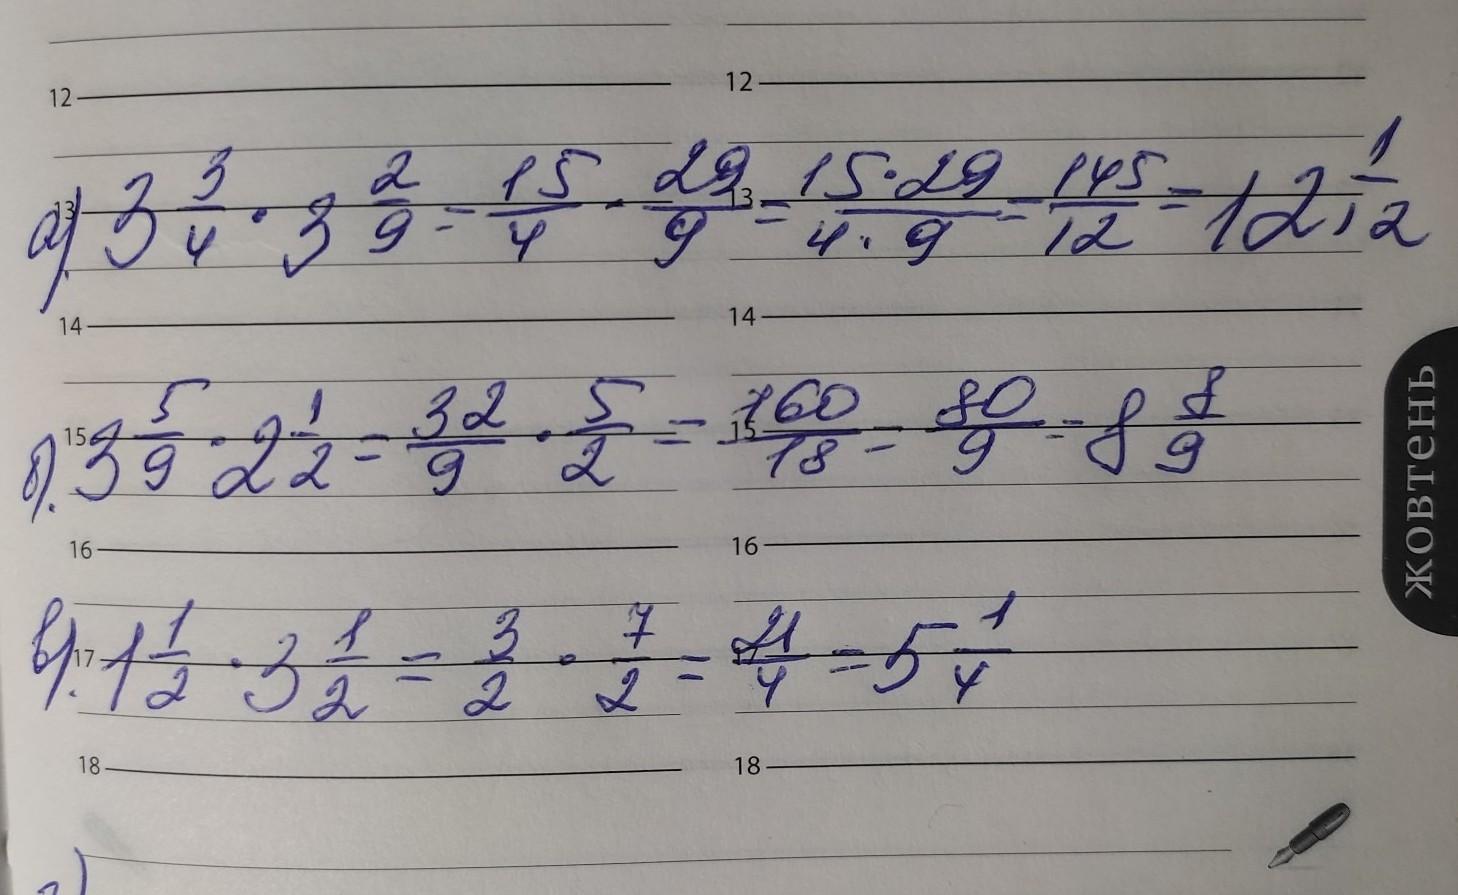 12 12
13 13
а). 3 3/4 · 3 2/9 = 15/4 · 29/9 = 15·29/4·9 = 145/12 = 12 1/12
14 14
15 15
б). 3 5/9 · 2 1/2 = 32/9 · 5/2 = 160/18 = 80/9 = 8 8/9
16 16
17
в). 1 1/2 · 3 1/2 = 3/2 · 7/2 = 21/4 = 5 1/4
18 18
ЖОВТЕНЬ